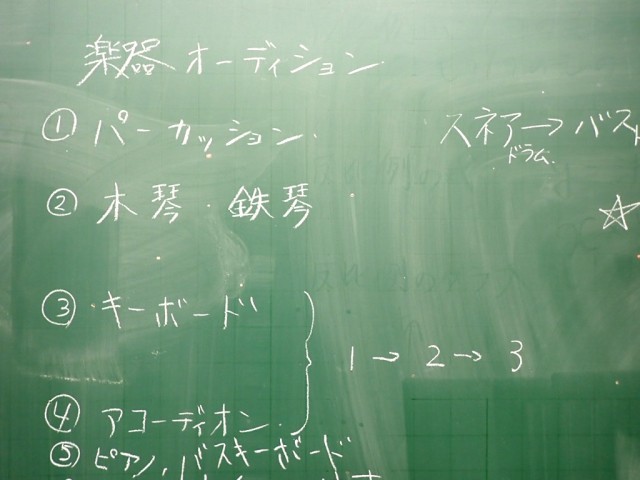 楽器オーディション
① パーカッション
スネア→バス
ドラム
② 木琴・鉄琴
☆
③ キーボード
1→2→3
④ アコーディオン
⑤ ピアノ、バスキーボード